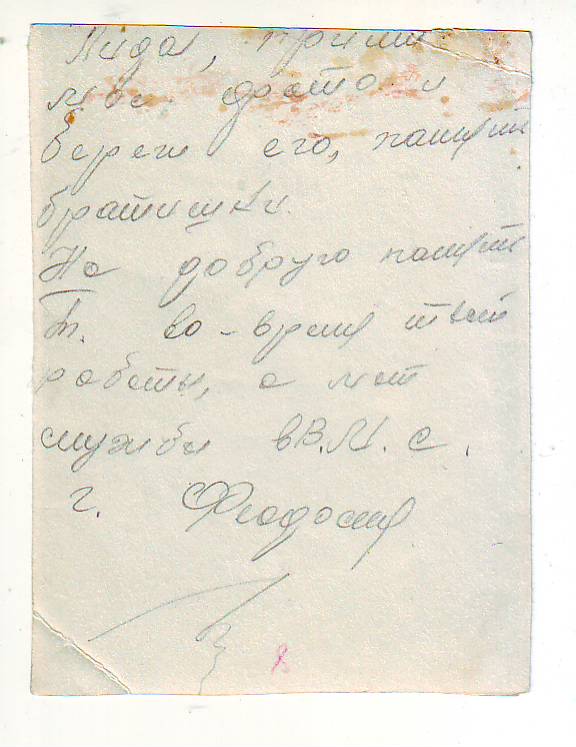 Лида, прими
мое фото и
береги его, память
братишки.
На добрую память
во-время твоей
работы, а моей
службы в В.М.С.
г. Феодосия